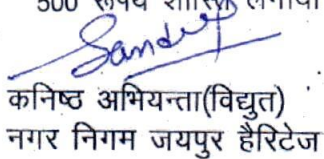 500 रूपये शास्ति
Sandeep
कनिष्ठ अभियन्ता(विद्युत)
नगर निगम जयपुर हैरिटेज